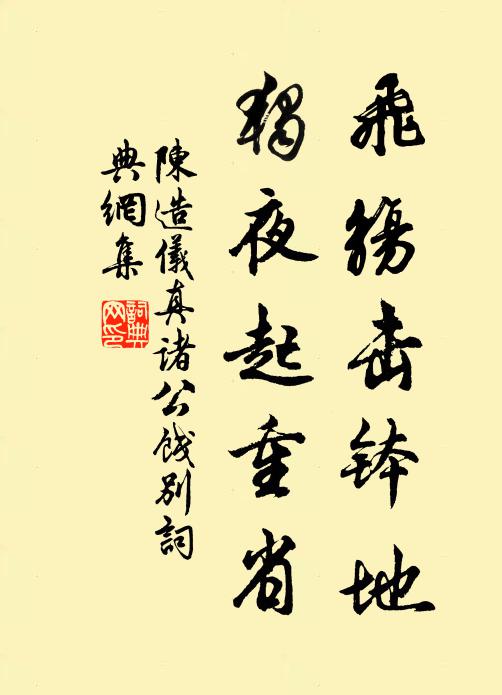 飛觴击钵地
獨夜起重省
陳造儀真諸公餞別詞
典網集
詞典网印